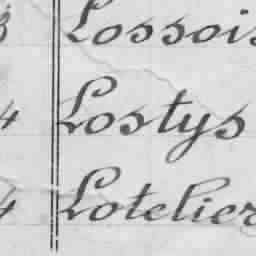 3 Lossois
4 Lostys
4 Lotelier